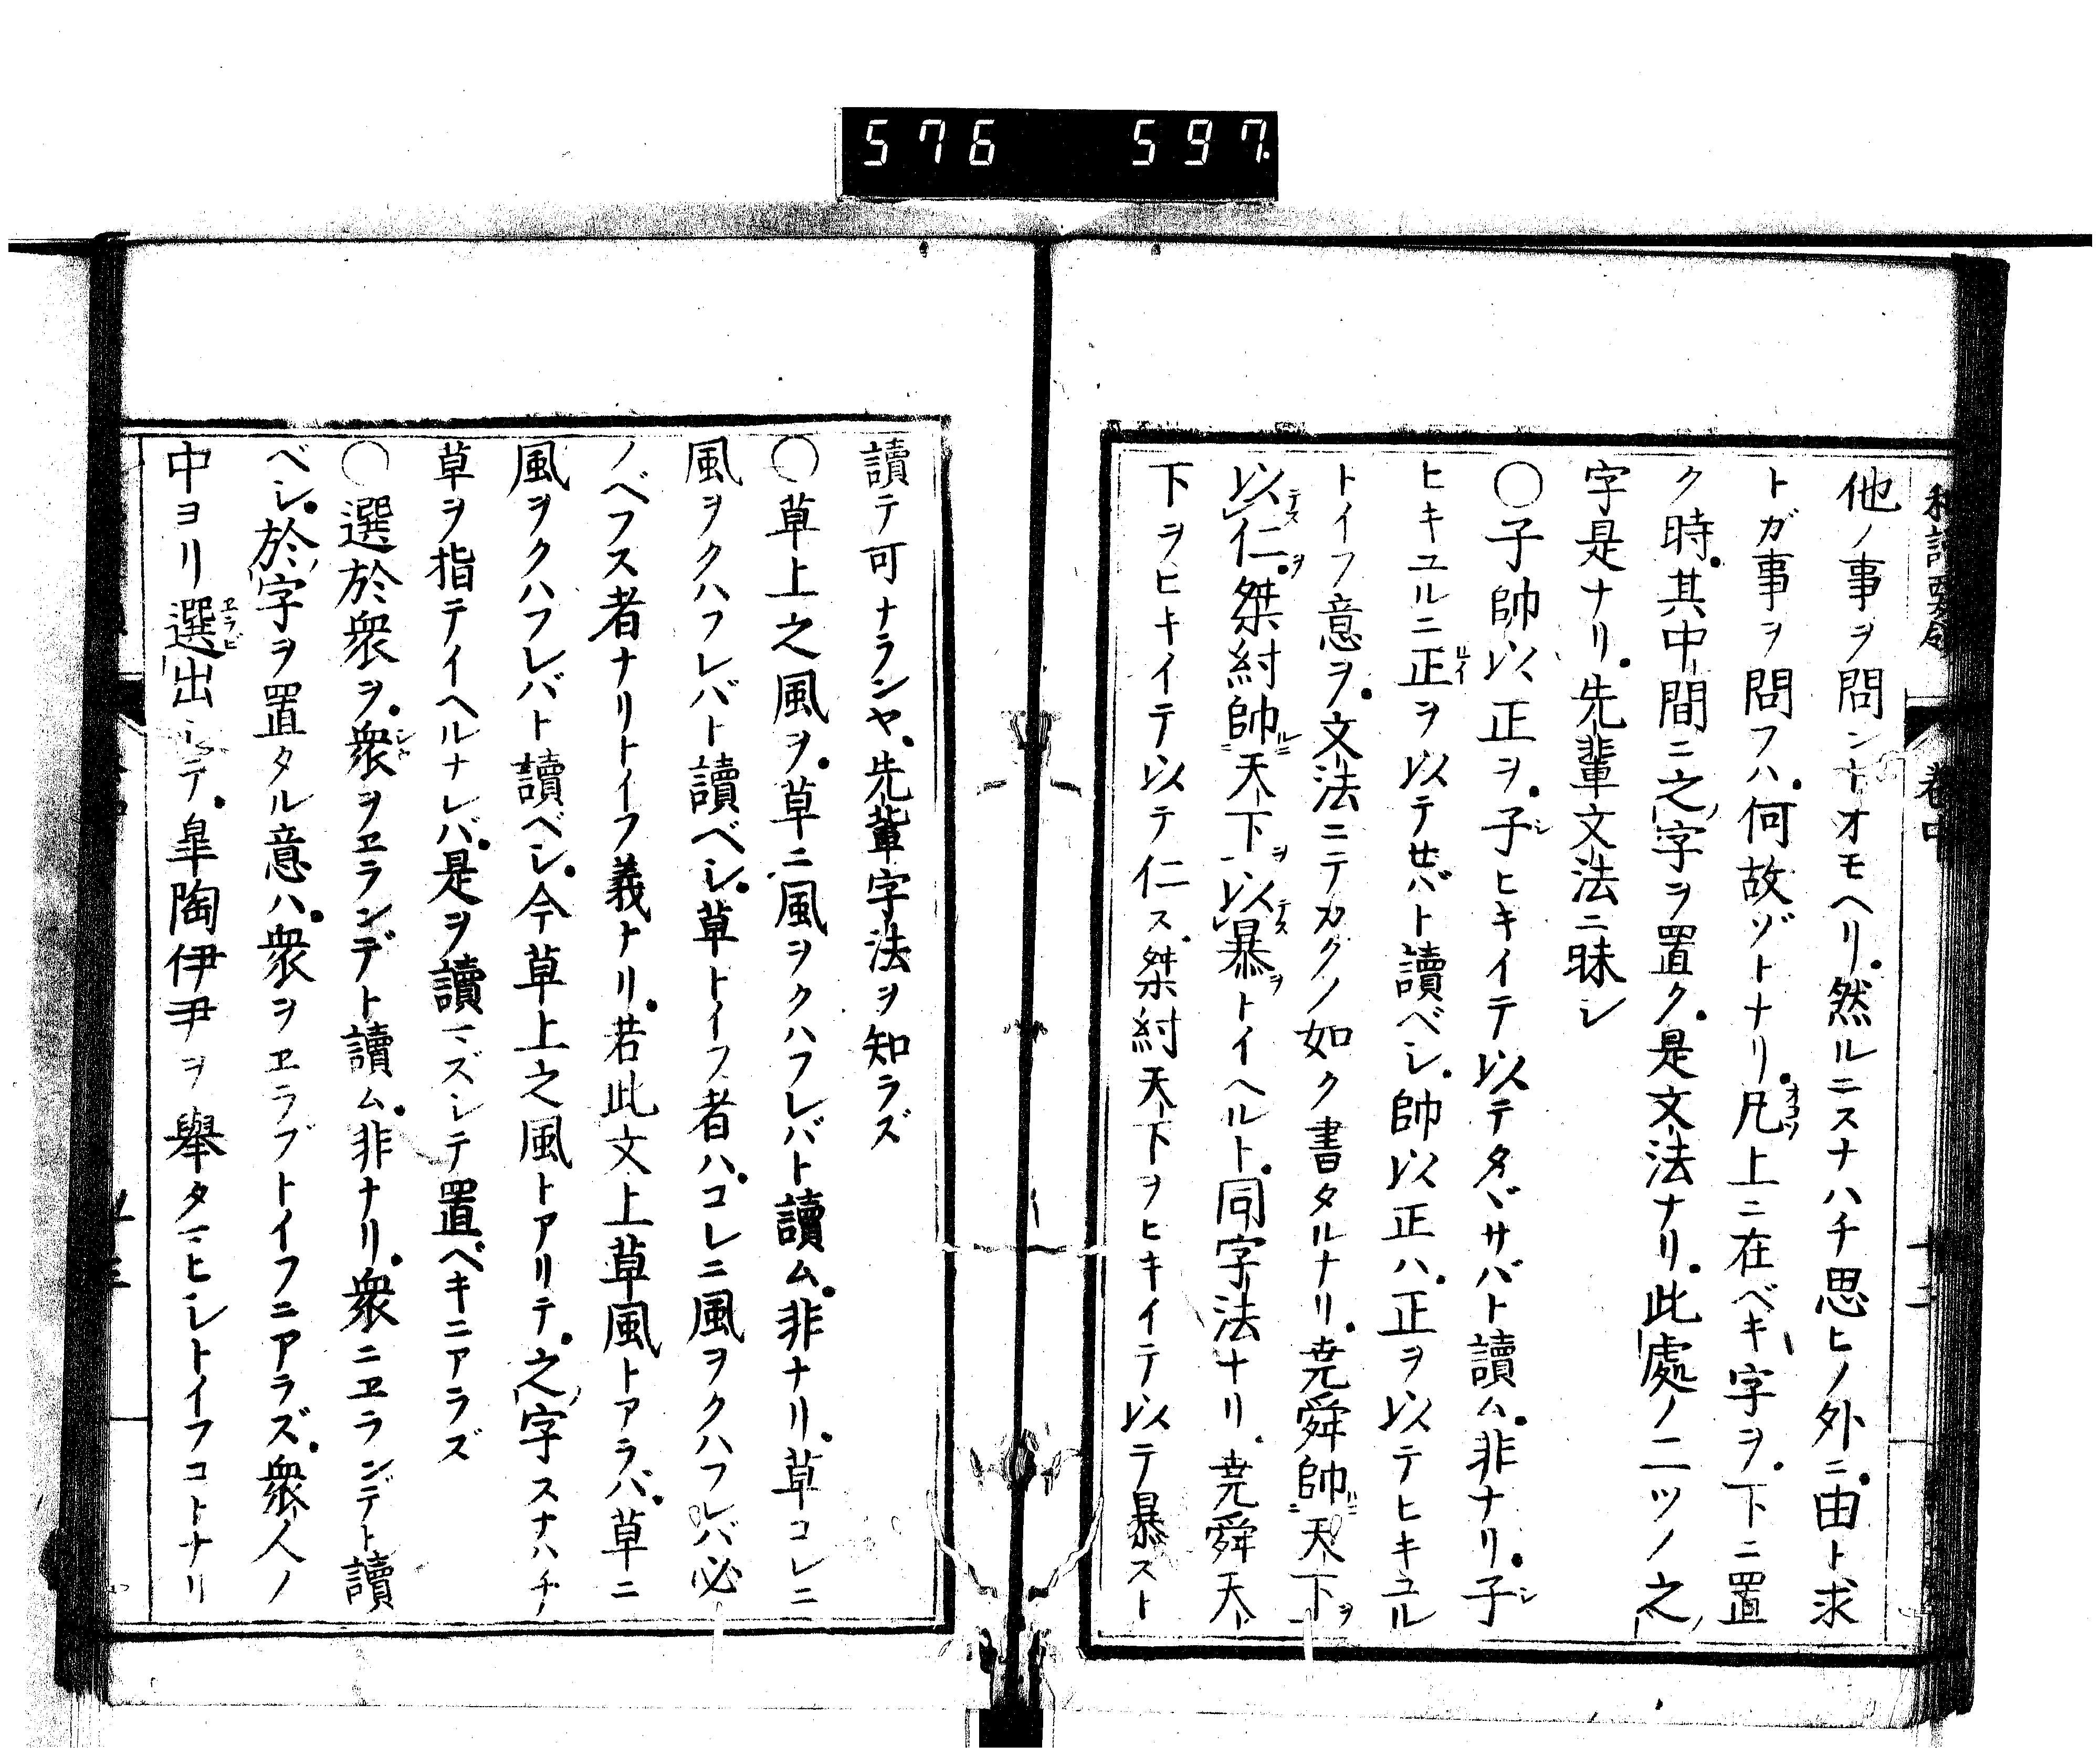 576 597
他ノ事ヲ問ントオモヘリ。然ルニスナハチ思ヒノ外ニ。由ト求
トガ事ヲ問フハ。何故ゾトナリ。凡上ニ在ベキ字ヲ。下ニ置
ク時。其中間ニ之字ヲ置ク。是文法ナリ。此處ノ二ツノ之
字是ナリ。先輩文法ニ昧シ
〇子帥以正ヲ。子ヒキイテ以テタヾサバト讀ム。非ナリ。子
ヒキユルニ正ヲ以テせバト讀ベシ。帥以正ハ。正ヲ以テヒキユル
トイフ意ヲ。文法ニテカクノ如ク書タルナリ。尭舜帥天下ヲ
以仁。桀紂帥天下以暴トイヘルト。同字法ナリ。尭舜天
下ヲヒキイテ以テ仁ス。桀紂天下ヲヒキイテ以テ暴スト
讀テ可ナランヤ。先輩字法ヲ知ラズ
〇草上之風ヲ。草ニ風ヲクハフレバト讀ム。非ナリ。草コレニ
風ヲクハフレバト讀ベシ。草トイフ者ハ。コレニ風ヲクハフレバ必
ノベフス者ナリトイフ義ナリ。若此文上草風トアラバ。草ニ
風ヲクハフレバト讀ベシ。今草上之風トアリテ。之字スナハチ
草ヲ指テイヘルナレバ。是ヲ讀マズシテ置ベキニアラズ
〇選於衆ヲ。衆ヲヱランデト讀ム。非ナリ。衆ニヱランデト讀
ベシ。於字ヲ置タル意ハ。衆ヲヱラブトイフニアラズ。衆人ノ
中ヨリ選出シテ。皐陶伊尹ヲ舉タマヒシトイフコトナリ